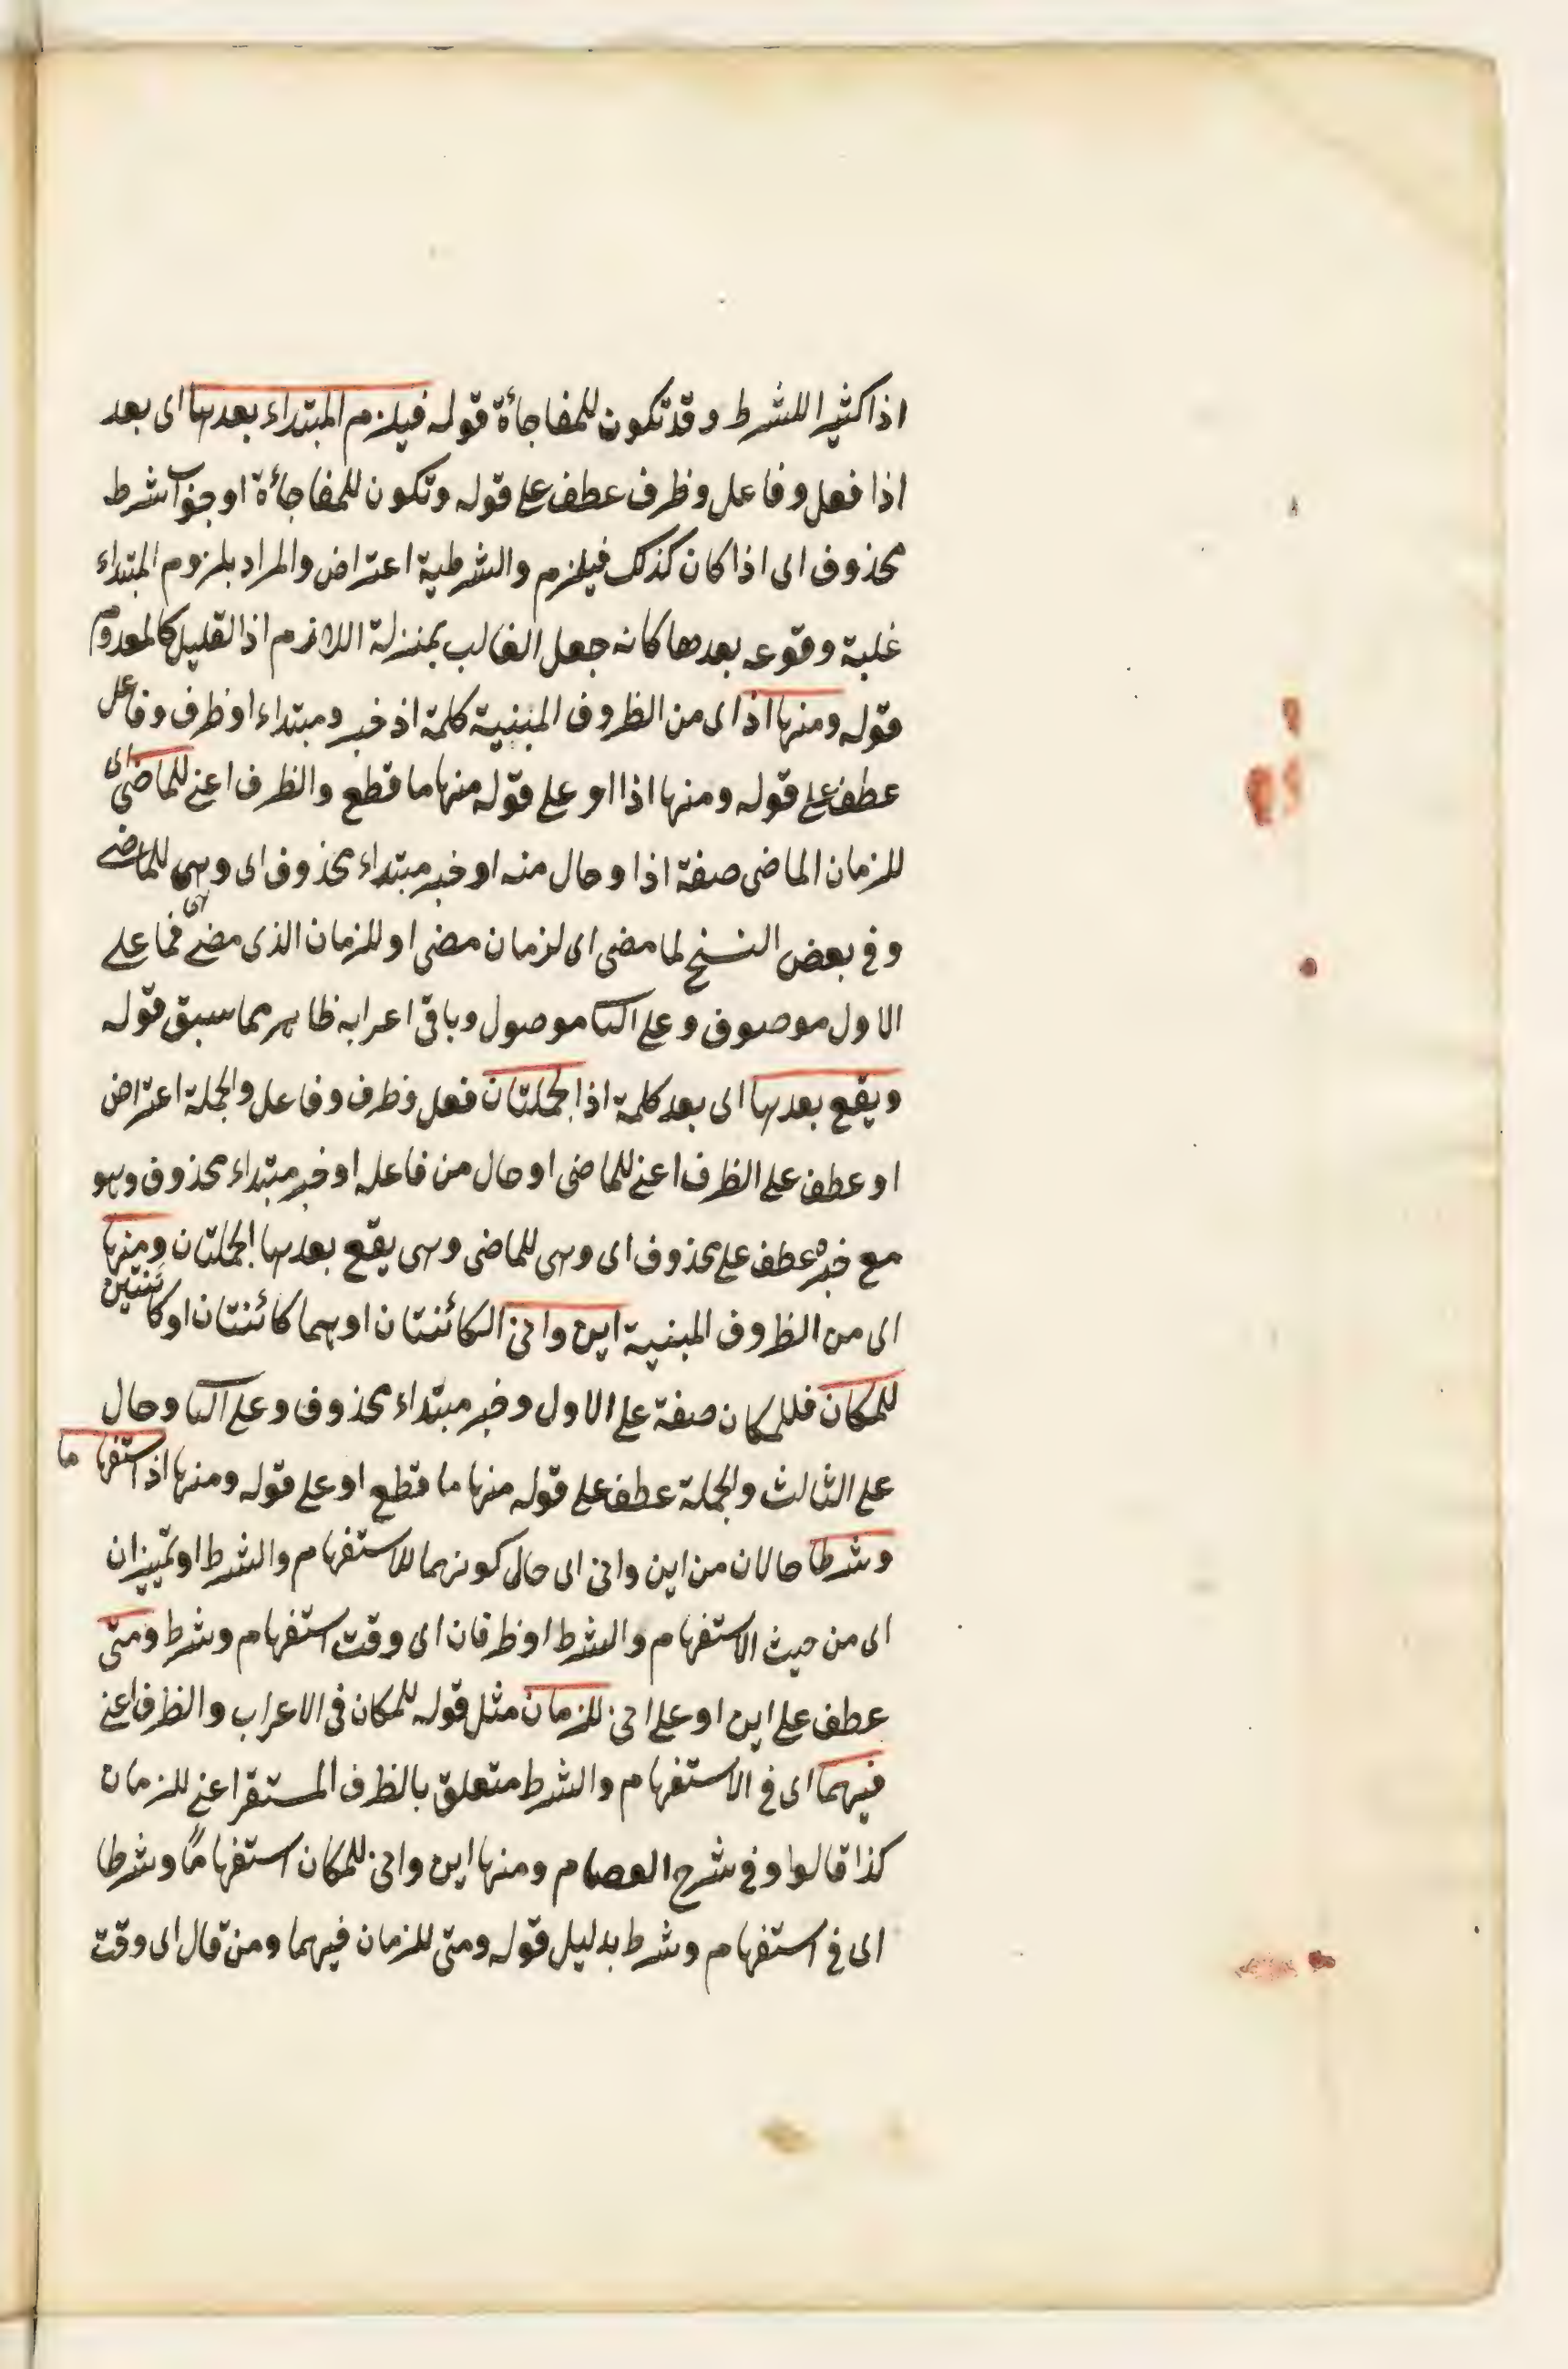 اذا كثيرا للشرط وقد تكون للمفاجأة قوله فيلزم المبتداء بعدها اى بعد
اذا فعل وفاعل وظرف عطف على قوله وتكون للمفاجأة او جواب شرط
محذوف اى اذا كان كذلك فيلزم والشرطية اعتراض والمراد بلزوم المبتداء
غلبة وقوعه بعدها كانه جعل الغالب بمنزلة اللازم اذ القليل كالمعدوم
قوله ومنها اذ اى من الظروف المبنية كلمة اذ خبر ومبتداء او ظرف وفاعل
عطف على قوله ومنها اذا او على قوله منها ما قطع والظرف اعنى للماضى اى
للزمان الماضى صفة اذ او حال منه او خبر مبتداء محذوف اى وهى للماضى
وفى بعض النسخ لما مضى اى لزمان مضى او للزمان الذى مضى فما على
الاول موصوف وعلى الثا موصول وباقى اعرابه ظاهر مما سبق قوله
ويقع بعدها اى بعد كلمة اذ الجملتان فعل وظرف وفاعل والجملة اعتراض
او عطف على الظرف اعنى للماضى او حال من فاعله او خبر مبتداء محذوف وهو
مع خبره عطف على محذوف اى وهى للماضى وهى يقع بعدها الجملتان ومنها
اى من الظروف المبنية اين وانى الكائنتان او هما كائنتان او كائنتين
للمكان فللمكان صفة على الاول وخبر مبتداء محذوف وعلى الثا وحال
على الثالث والجملة عطف على قوله منها ما قطع او على قوله ومنها اذ استفهاما
وشرطا حالان من اين وانى اى حال كونهما للاستفهام والشرط او تمييزان
اى من حيث الاستفهام والشرط او ظرفان اى وقت استفهام وشرط ومتى
عطف على اين او على انى للزمان مثل قوله للمكان فى الاعراب والظرف اعنى
فيهما اى فى الاستفهام والشرط متعلق بالظرف المستقر اعنى للزمان
كذا قالوا وفى شرح العصام ومنها اين وانى للمكان استفهامًا وشرطا
اى فى استفهام وشرط بدليل قوله ومتى للزمان فيهما ومن قال اى وقت